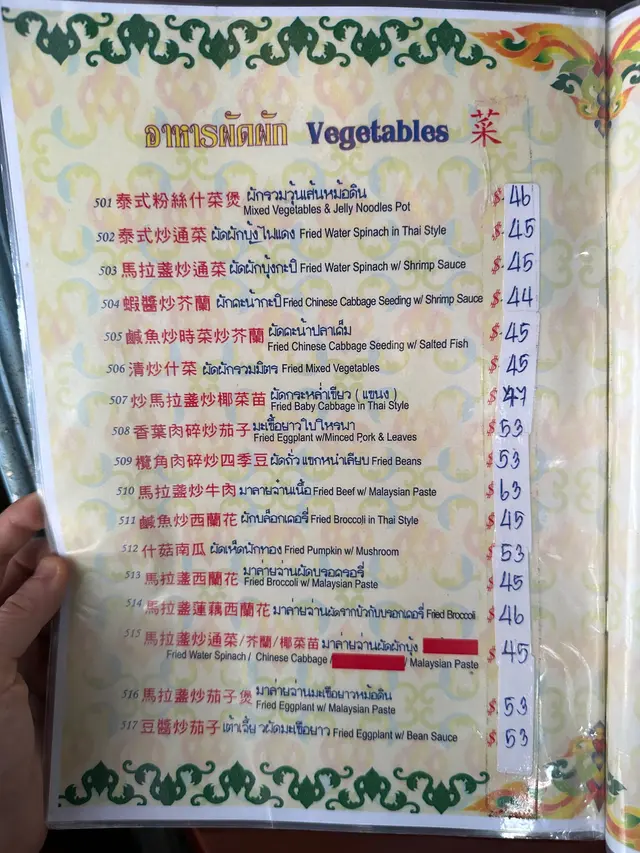 อาหารผัดผัก Vegetables 菜
501 泰式粉絲什菜煲 ผักรวมวุ้นเส้นหม้อดิน $ 46
Mixed Vegetables & Jelly Noodles Pot
502 泰式炒通菜 ผัดผักบุ้งไฟแดง Fried Water Spinach in Thai Style $ 45
503 馬拉盞炒通菜 ผัดผักบุ้งกะปิ Fried Water Spinach w/ Shrimp Sauce $ 45
504 蝦醬炒芥蘭 ผักคะน้ากะปิ Fried Chinese Cabbage Seeding w/ Shrimp Sauce $ 44
505 鹹魚炒時菜炒芥蘭 ผัดคะน้าปลาเค็ม $ 45
Fried Chinese Cabbage Seeding w/ Salted Fish
506 清炒什菜 ผัดผักรวมมิตร Fried Mixed Vegetables $ 45
507 炒馬拉盞炒椰菜苗 ผัดกระหล่ำเขียว ( แขนง ) $ 47
Fried Baby Cabbage in Thai Style
508 香葉肉碎炒茄子 มะเขือยาวใบโหรพา $ 53
Fried Eggplant w/Minced Pork & Leaves
509 欖角肉碎炒四季豆 ผัดถั่วแขกหนำเลียบ Fried Beans $ 53
510 馬拉盞炒牛肉 มาลาย่จ๋านเนื้อ Fried Beef w/ Malaysian Paste $ 63
511 鹹魚炒西蘭花 ผัดบล็อกเคอรี่ Fried Broccoli in Thai Style $ 45
512 什菇南瓜 ผัดเห็ดฟักทอง Fried Pumpkin w/ Mushroom $ 53
513 馬拉盞西蘭花 มาล่าย่จ๋านผัดบรอครอรี่ $ 45
Fried Broccoli w/ Malaysian Paste
514 馬拉盞蓮藕西蘭花 มาล่าย่จ๋านผัดรากบัวกับบรอกเคอรี่ Fried Broccoli $ 46
515 馬拉盞炒通菜/芥蘭/椰菜苗 มาล่าย่จ๋านผัดผักบุ้ง $ 45
Fried Water Spinach / Chinese Cabbage / / Malaysian Paste
516 馬拉盞炒茄子煲 มาล่าย่จ๋านมะเขือยาวหม้อดิน $ 53
Fried Eggplant w/ Malaysian Paste
517 豆醬炒茄子 เต้าเจี้ยวผัดมะเขือยาว Fried Eggplant w/ Bean Sauce $ 53